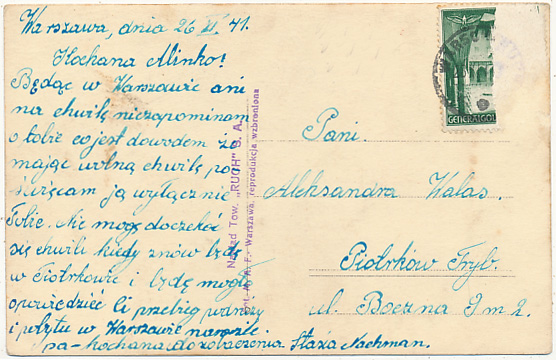 Warszawa, dnia 26 XI 41.
Kochana Alinko!
Będąc w Warszawie ani
na chwilę niezapominam
o tobie co jest dowodem że
mając wolną chwilę po-
święcam ją wyłącznie
Tobie. Nie mogę doczekać
się chwili kiedy znów będę
w Piotrkowie i będę mogła
opowiedzieć Ci przebieg
i pobytu w Warszawie narazie
pa-kochana do zobaczenia. Stażā Nachman.
Nakład Tow. „RUCH" S. A.
Warszawa, reprodukcja wzbroniona
GENERALGOU
Pani.
Aleksandra Walas.
Piotrków Tryb.
ul. Boczna 9 m 2.